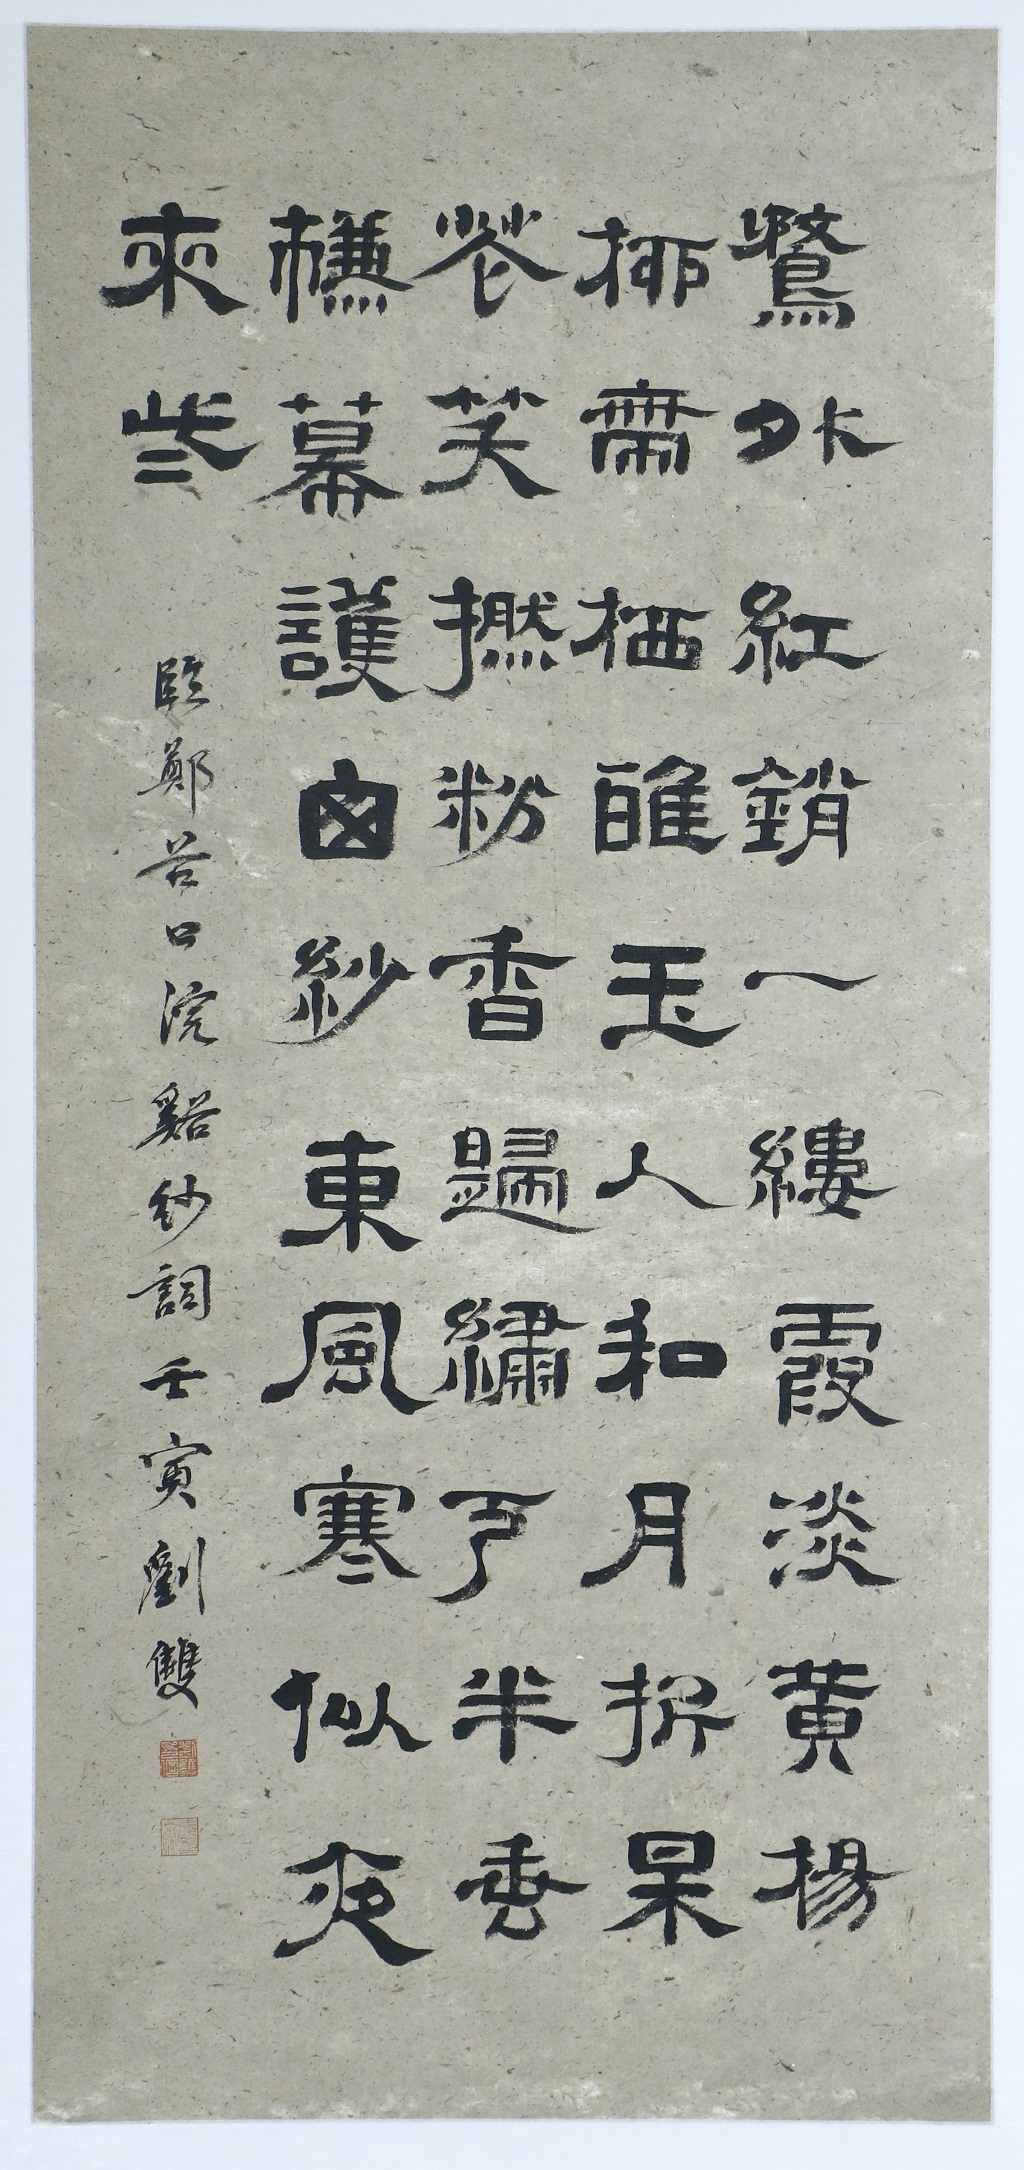 鶩外紅銷一縷霞淡黃揚
桺栖雅玉人和月折呆
花笑撚粉香歸繡戶半垂
簾幕護囪紗東風寒似夜
來些
臨鄭谷口浣谿紗詞壬寅劉雙